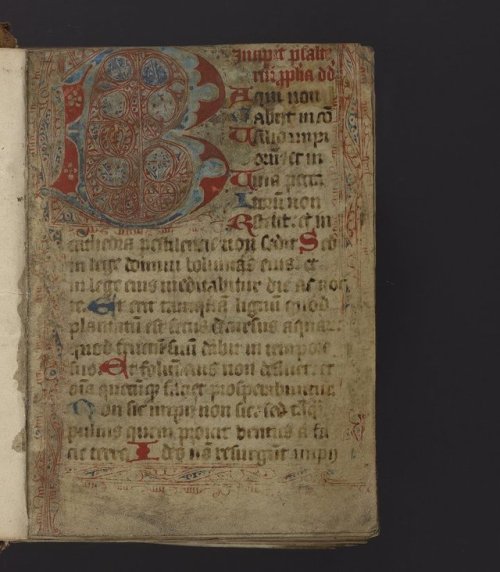 Incipit psalte
riū ꝓphā dd
B
EATVS
qui non
abiit in cō
silio impi
orū: et in
uina pecca
torum non
stetit: et in
cathedra pestilencie non sedit Sed
in lege domini voluntas eius: et
in lege eius meditabitur die ac noc
te. Et erit tamquā lignū quod
plantatū est secus decursus aquarū
quod fructū suū dabit in tempore
suo. Et foliū eius non defluet: et
oīa quecūqꝫ faciet prosperabuntur.
Non sic impii non sic: sed tāqꝫ
puluis quem proicit ventus a fa
cie terre. Ideo nō resurgūt impii